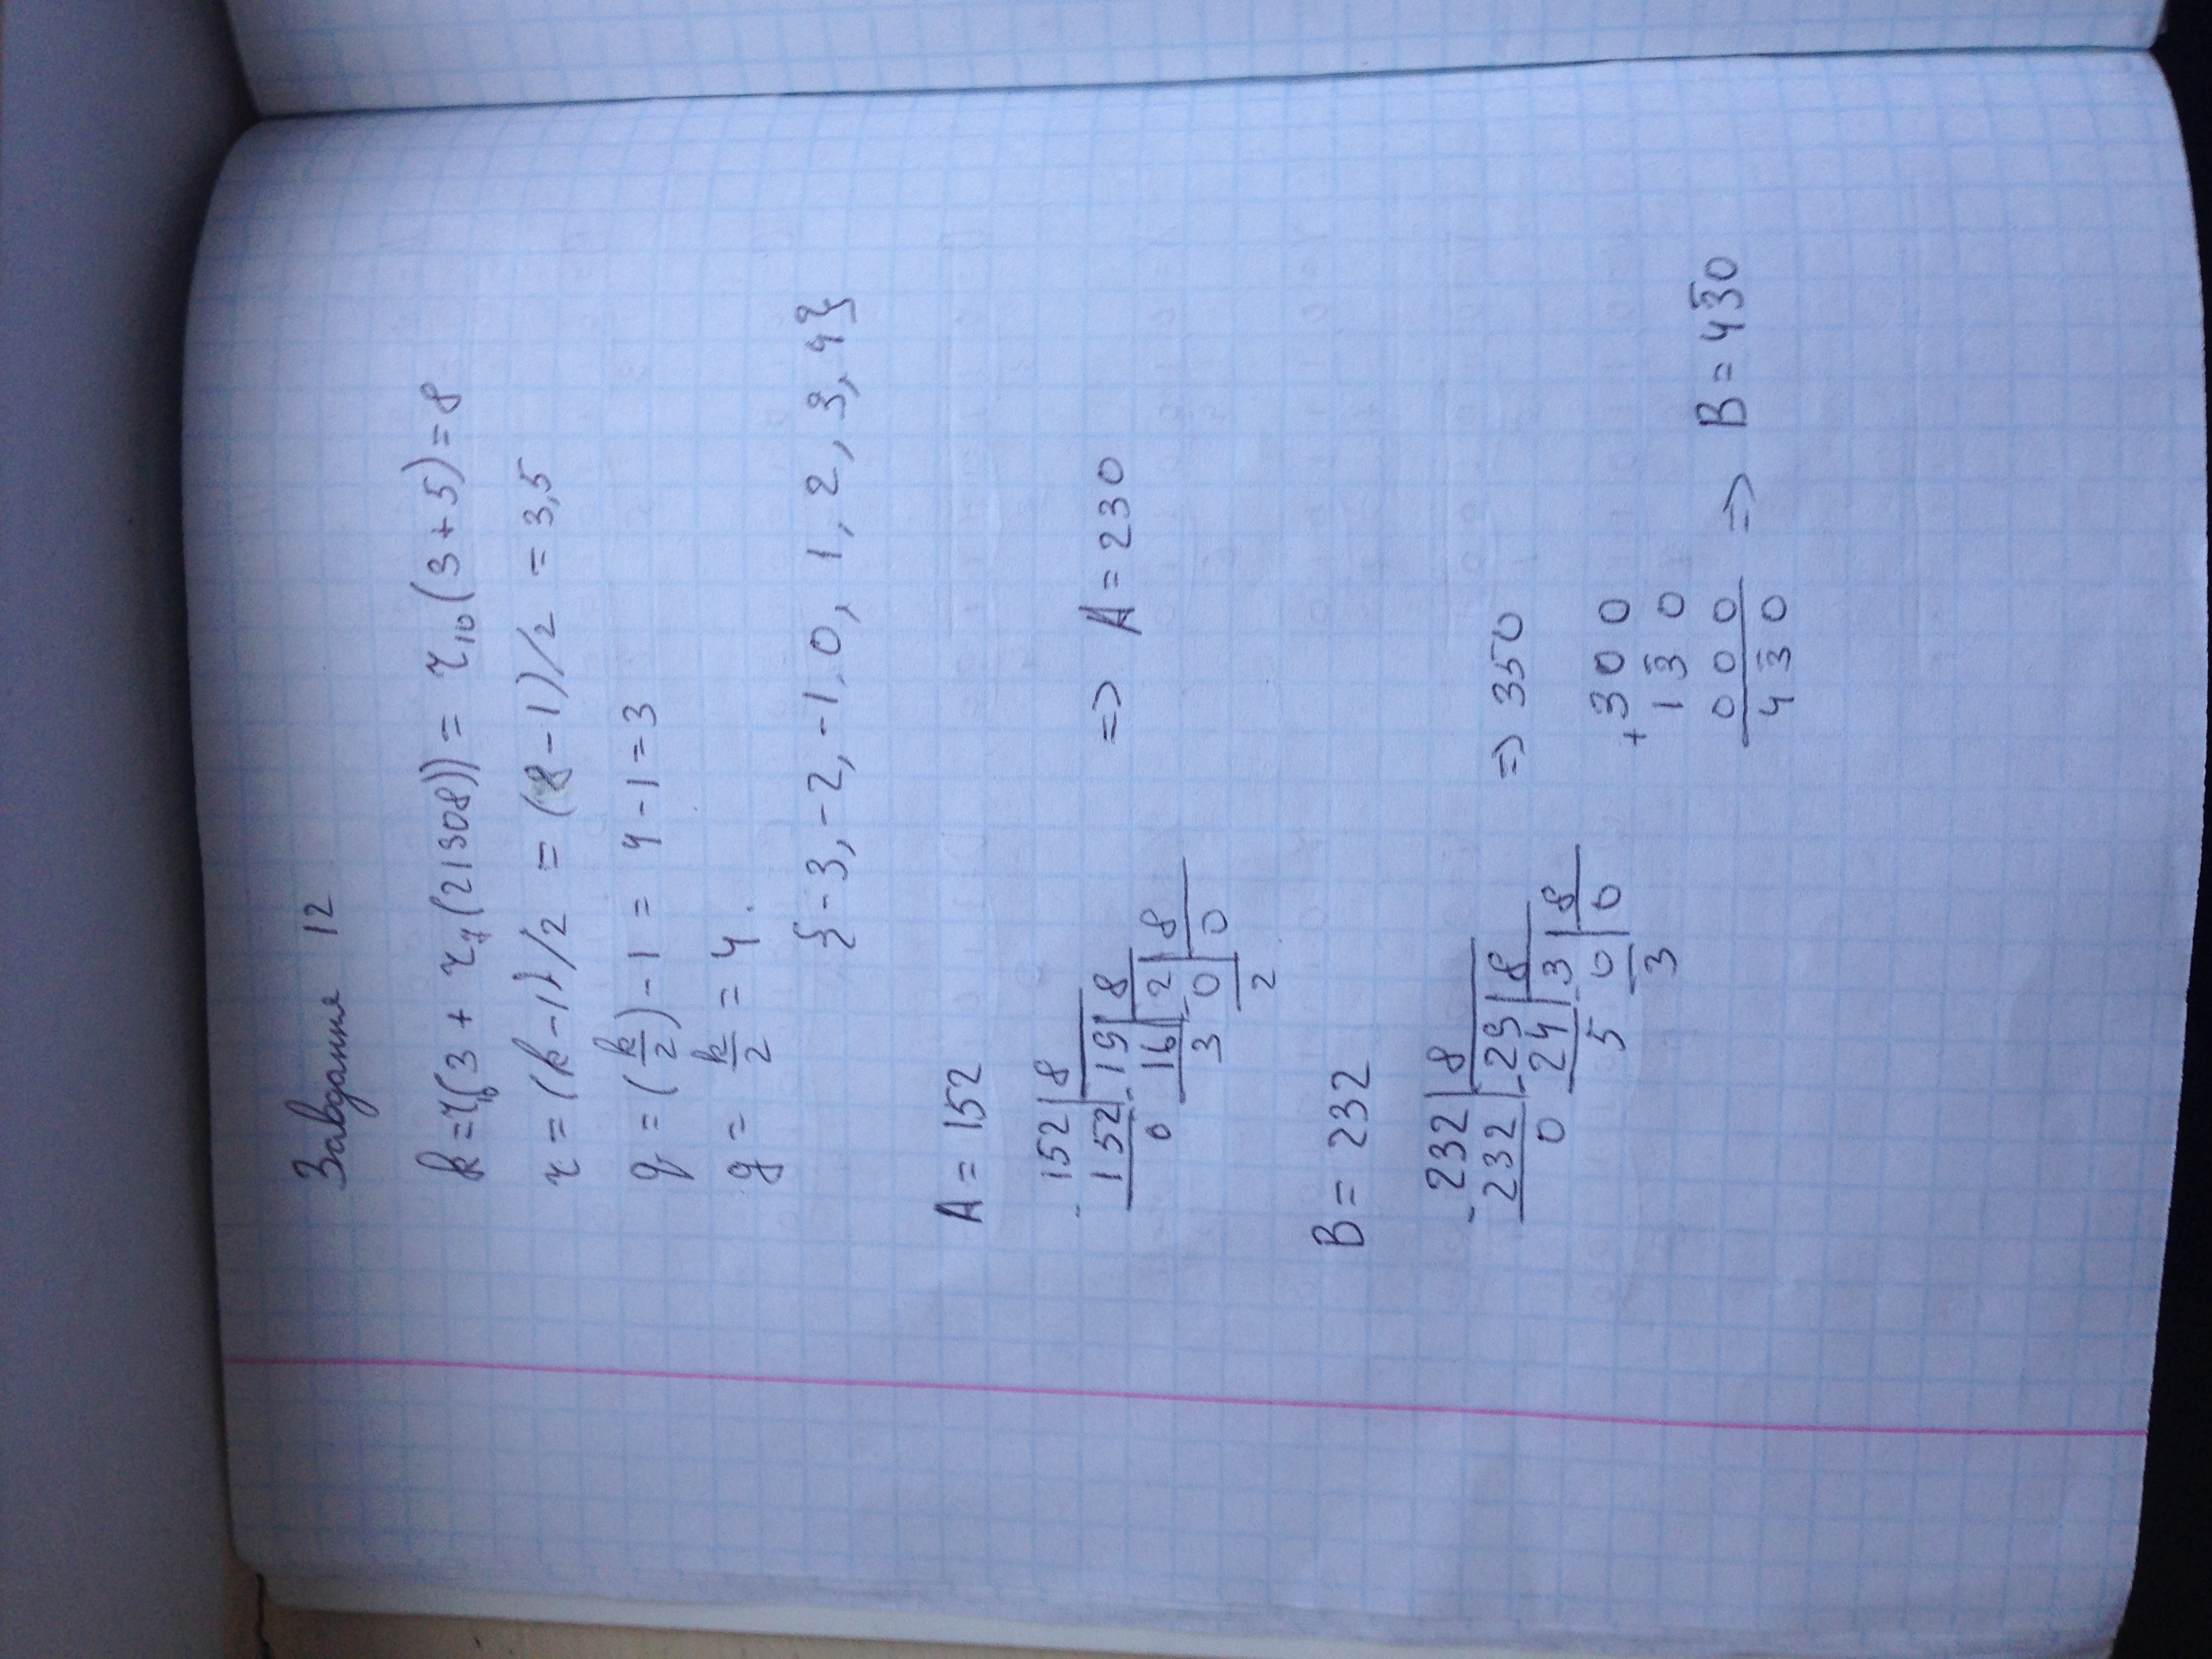 Завдання 12
k = r₁₀(3 + r₇(21308)) = r₁₀(3+5) = 8
r = (k-1)/2 = (8-1)/2 = 3,5
q = (k/2) - 1 = 4 - 1 = 3
g = k/2 = 4.
{-3, -2, -1, 0, 1, 2, 3, 4}
A = 152
- 152 | 8
152 - 19 | 8 => A = 230
0 16 - 2 | 8
3 0 0
2
B = 232
- 232 | 8
232 - 29 | 8 => 350
0 24 - 3 | 8
5 0 0
3
+ 3 0 0
1 3̄ 0
0 0 0 => B = 43̄0
4 3̄ 0